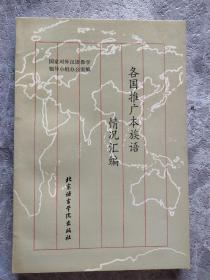 国家对外汉语教学
领导小组办公室编
各国推广本族语
情况汇编
北京语言学院出版社